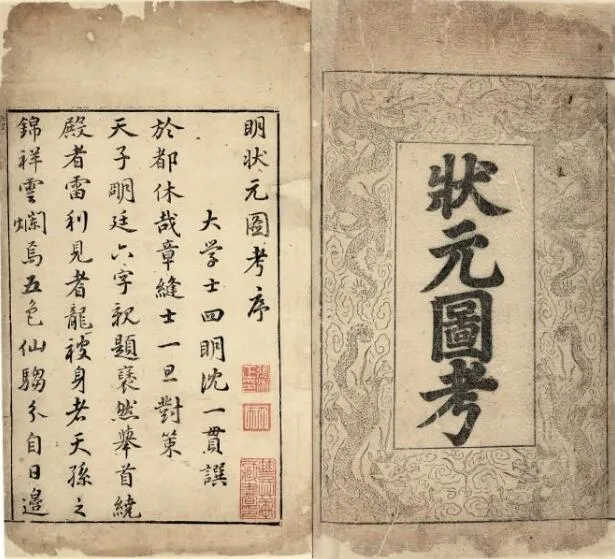 狀元圖考
明狀元圖考序
大学士四明沈一貫譔
於都休哉章縫士一旦對策
天子明廷六字親題裒然舉首繞
殿者雷利見者龍被身者天孫之
錦祥雲爛焉五色仙騶分自日邊